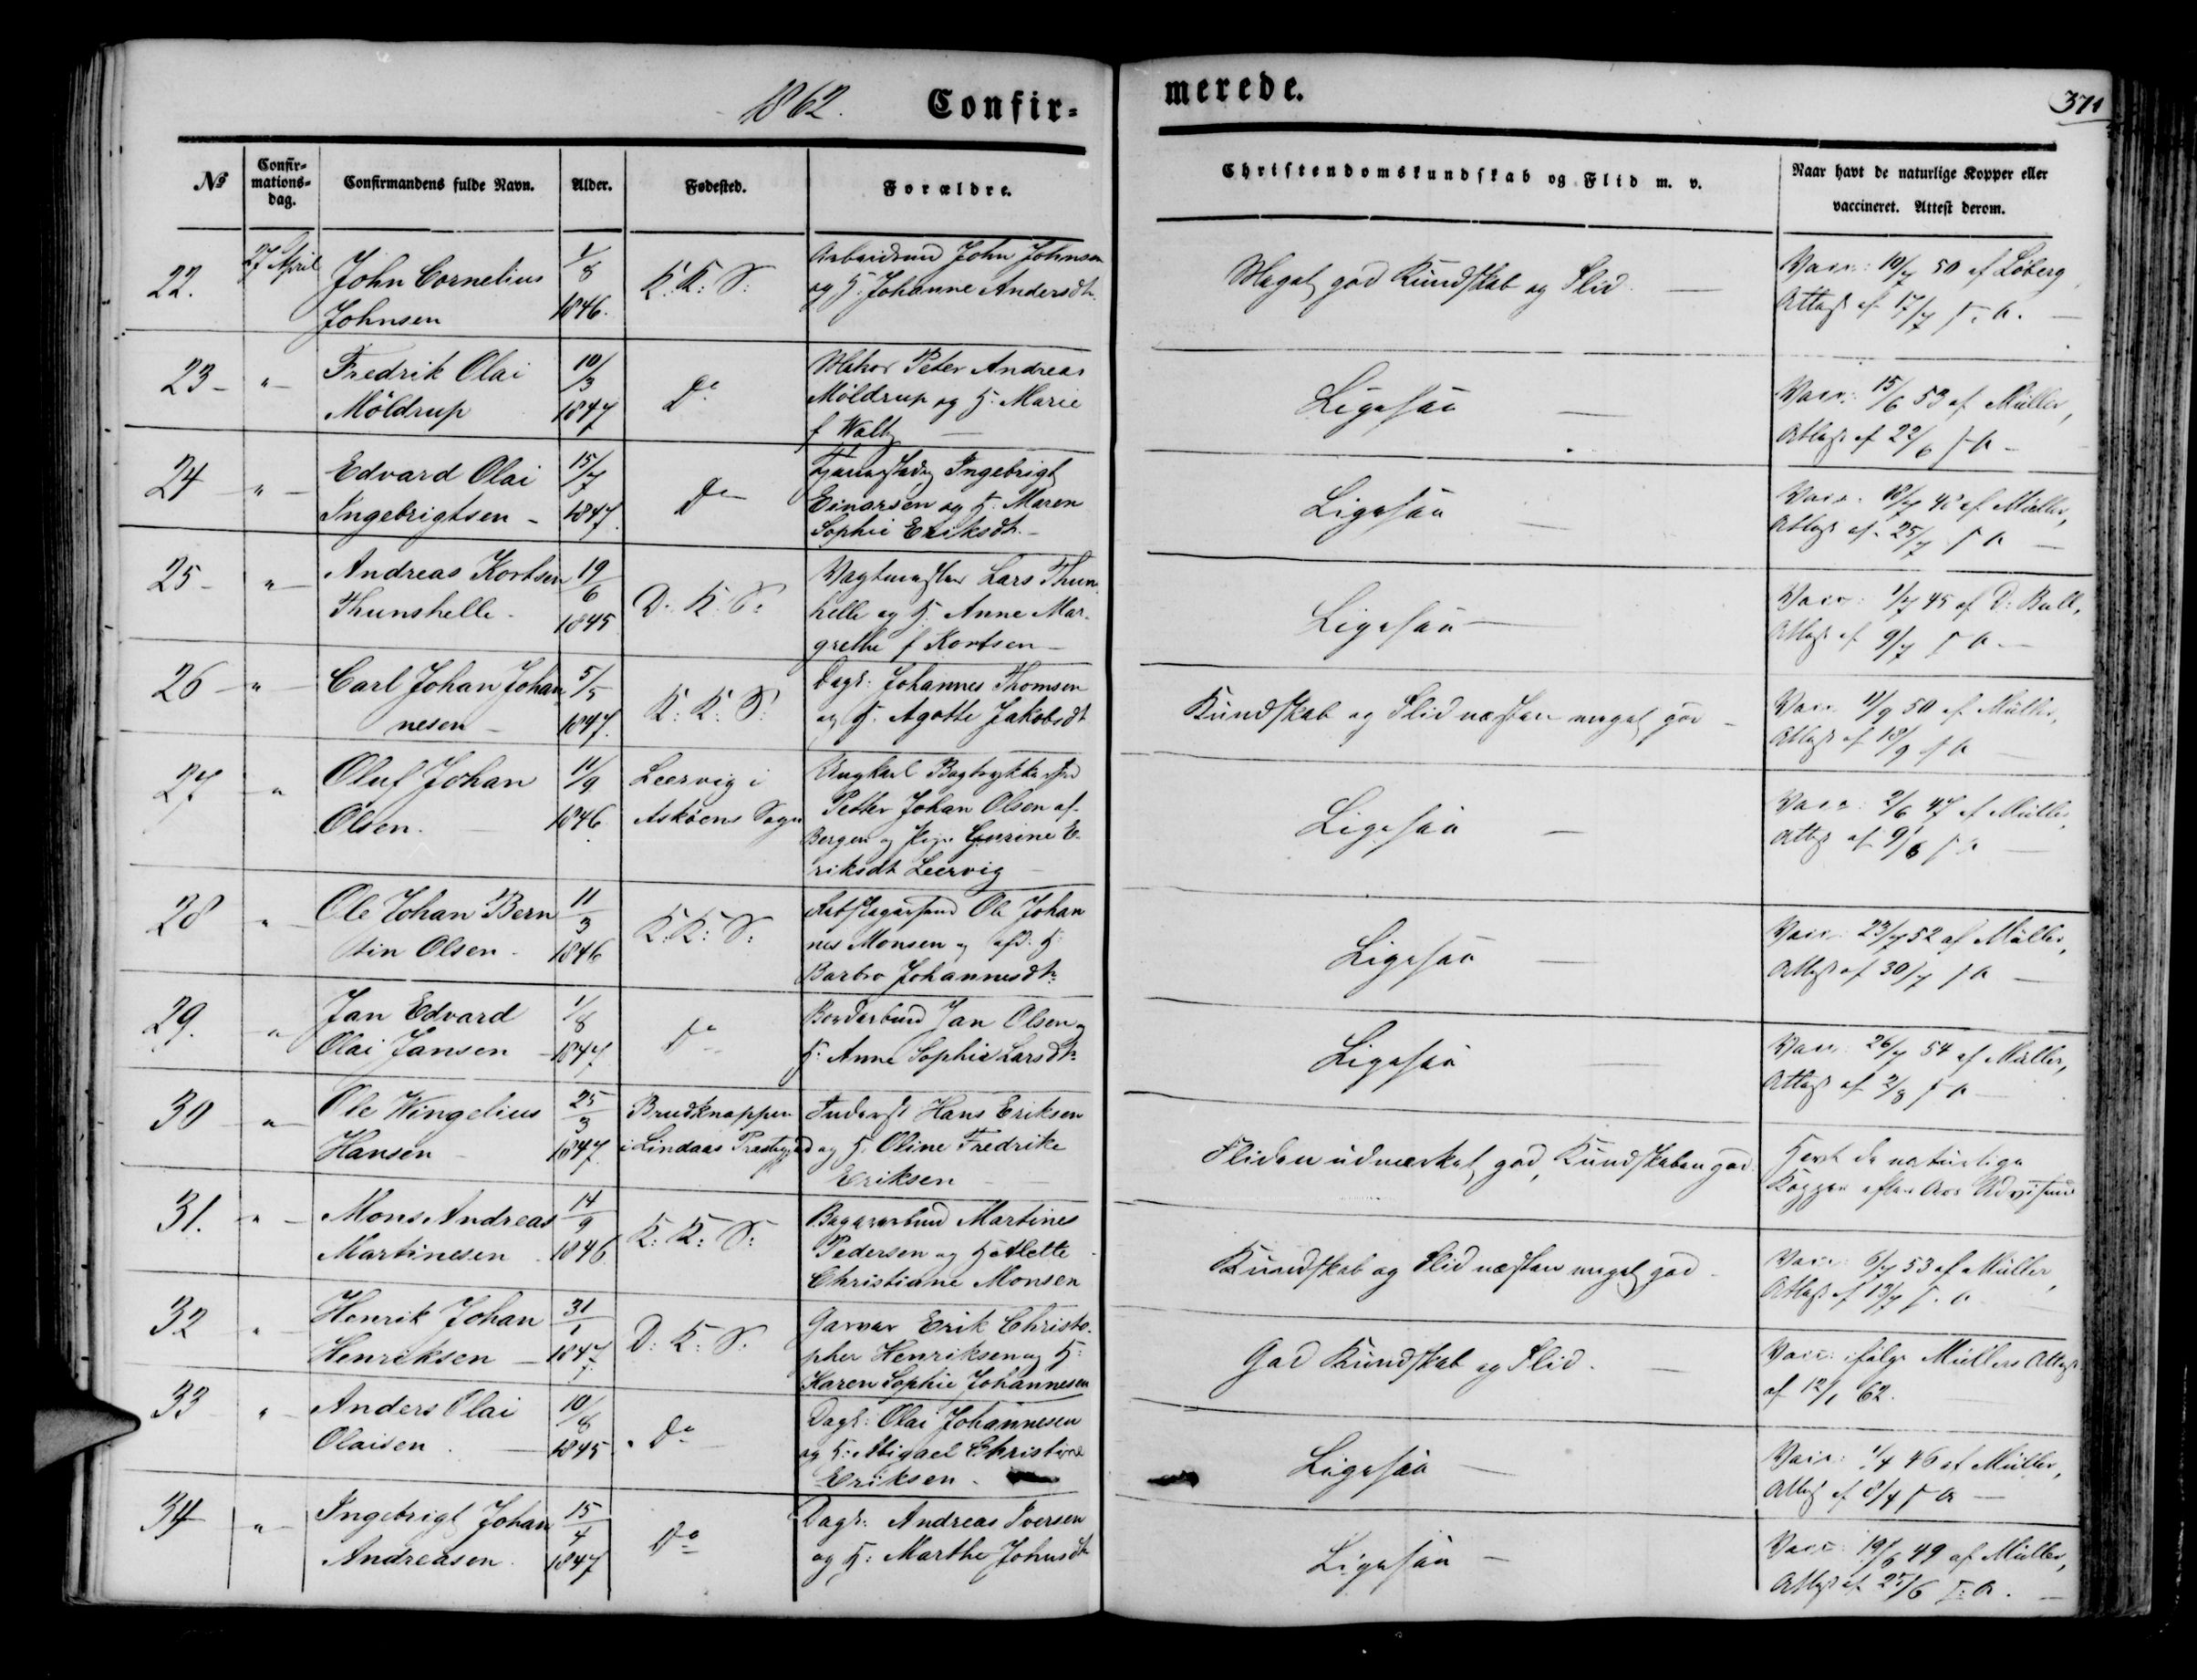 1862. Confir-
merede.
371
No
Confir-
mations-
dag.
Confirmandens fulde Navn.
Alder.
Fødested.
Forældre.
Christendomskundskab og Flid m. v.
Naar havt de naturlige Kopper eller
vaccineret. Attest derom.
22. 27 April John Cornelius 1/8 K: K: S: John Johnsen Meget god Kundskab og Flid Vacc: 10/7 50 af Løberg,
Johnsen 1846. og H. Johanne Andersdt. Attest af 17/7 s. A.
23 " Fredrik Olai 10/3 Do Peter Andreas Ligesaa Vacc: 15/6 53 af Müller,
Möldrup 1847 Möldrup og H. Marie Attest af 22/6 s A
f
24 " Edvard Olai 15/7 Do Ingebrigt Ligesaa Vacc: 18/7 48 af Müller,
Ingebrigtsen 1847. Einarsen og H. Maren Attest af 25/7 s A
Sophie Eriksdt.
25 " Andreas Kortsen 19/6 D. K. S: Vagtmester Lars Thun Ligesaa Vacc: 1/7 45 af D: Bull,
Thunshelle 1845 helle og H. Anne Mar- Attest af 9/7 s A
grethe f Kortsen
26 " Carl Johan Johan 5/5 K: K: S: Dagk: Johannes Thomsen Kundskab og Flid næsten meget god Vacc 11/9 50 af Müller,
nesen 1847. og H. Agotte Jakobsdt Attest af 18/9 s A
27 " Oluf Johan 11/9 Leervig i Ungkarl Ligesaa Vacc: 2/6 47 af Müller,
Olsen. 1846. Askøens Sogn Petter Johan Olsen af Attest af 9/6 s A
Bergen og Pige Gurine E-
riksdt Leervig
28 " Ole Johan Bern 11/3 K: K: S: Ole Johan Ligesaa Vacc: 23/7 52 af Müller,
tin Olsen. 1846 nes Monsen og afd. H. Attest af 30/7 s A
Barbro Johannesdt.
29. " Jan Edvard 1/8 Do Jan Olsen og Ligesaa Vacc: 26/7 54 af Müller,
Olai Jansen 1847 H. Anne Sophie Larsdt: Attest af 2/8 s A
30 " Ole Wingelius 25/3 Brudknappen Inderst Hans Eriksen Fliden udmerket god, Kundskaben god. Havt de naturlige
Hansen 1847. i Lindaas Præstegjeld og H. Oline Fredrike Kopper efter
Eriksen
31. " Mons Andreas 14/9 K: K: S: Martines Kundskab og Flid næsten meget god Vacc: 6/7 53 af Müller,
Martinesen 1846 Pedersen og H Alette Attest af 13/7 s. A
Christiane Monsen
32 " Henrik Johan 31/1 D: K: S: Garver Erik Christo- God Kundskab og Flid. Vacc: ifølge Müllers Attest
Henriksen 1847. pher Henriksen og H: af 12/1 62.
Karen Sophie Johannesen
33 " Anders Olai 10/8 Do Dagk: Olai Johannesen Ligesaa Vacc: 1/4 46 af Müller,
Olaisen 1845 og H: Abigael Christine Attest af 8/4 s A
Eriksen.
34 " Ingebrigt Johan 15/4 Do Dagk: Andreas Iversen Ligesaa Vacc: 19/6 49 af Müller,
Andreasen 1847 og H: Marthe Johnsdt Attest af 25/6 s. A.